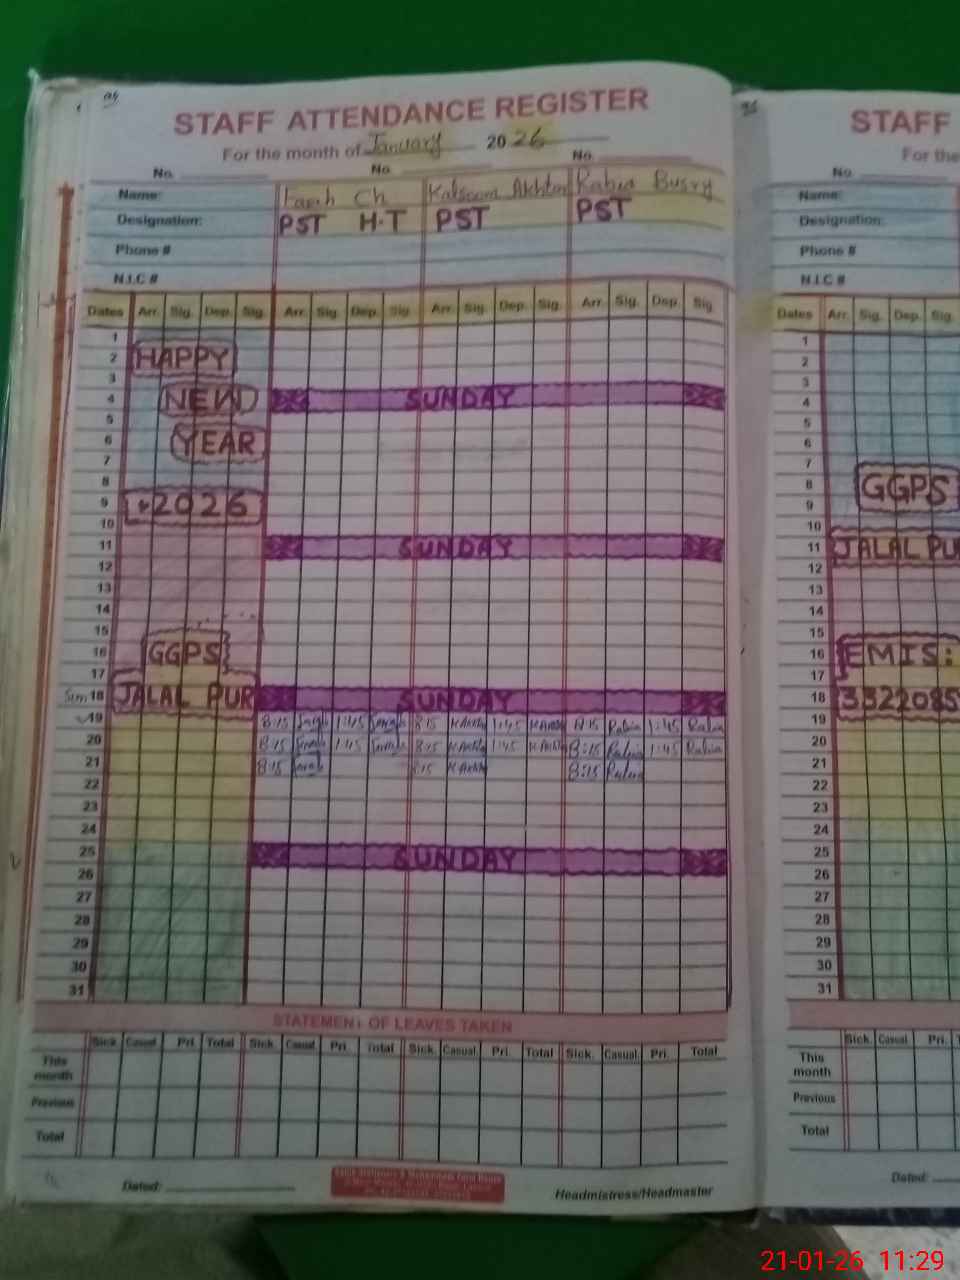 STAFF ATTENDANCE REGISTER
For the month of January 2026
No. No. No.
Name: Ch Kalsoom Akhtar Rabia
Designation: PST H-T PST PST
Phone #
N.I.C #
Dates Arr. Sig. Dep. Sig. Arr. Sig. Dep. Sig. Arr. Sig. Dep. Sig. Arr. Sig. Dep. Sig.
1
2 HAPPY
3
4 NEW SUNDAY
5
6 YEAR
7
8
9 2026
10
11 SUNDAY
12
13
14
15
16 GGPS
17
Sun 18 JALAL PUR SUNDAY
19 8:15 1:45 8:15 K Akhtar 1:45 K Akhtar 8:15 Rabia 1:45 Rabia
20 8:15 1:45 8:15 K Akhtar 1:45 K Akhtar 8:15 Rabia 1:45 Rabia
21 8:15 8:15 K Akhtar 8:15 Rabia
22
23
24
25 SUNDAY
26
27
28
29
30
31
STATEMENT OF LEAVES TAKEN
Sick. Casual. Pri. Total Sick. Casual. Pri. Total Sick. Casual. Pri. Total Sick. Casual. Pri. Total
This month
Previous
Total
Dated:
Headmistress/Headmaster
STAFF
For the
No.
Name:
Designation:
Phone #
N.I.C #
Dates Arr. Sig. Dep. Sig.
1
2
3
4
5
6
7
8 GGPS
9
10
11 JALAL PU
12
13
14
15
16 EMIS:
17
18 3322085
19
20
21
22
23
24
25
26
27
28
29
30
31
Sick. Casual. Pri.
This month
Previous
Total
Dated:
21-01-26 11:29